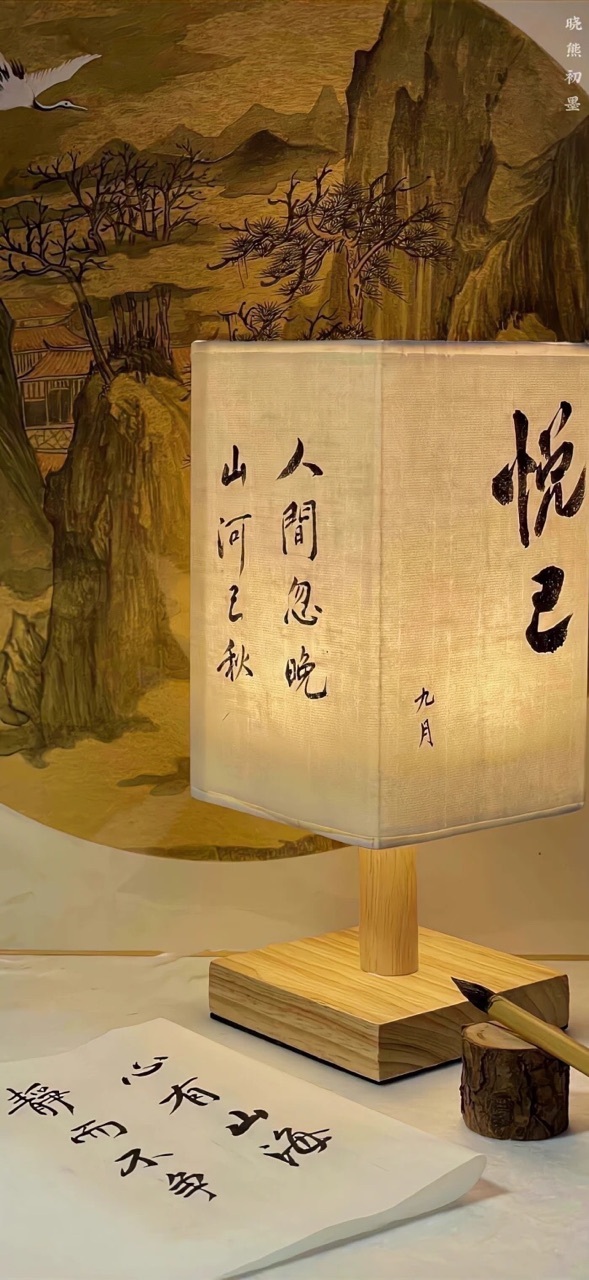 晓熊初墨
悦己
九月
人間忽晚
山河已秋
心有山海
靜而不争